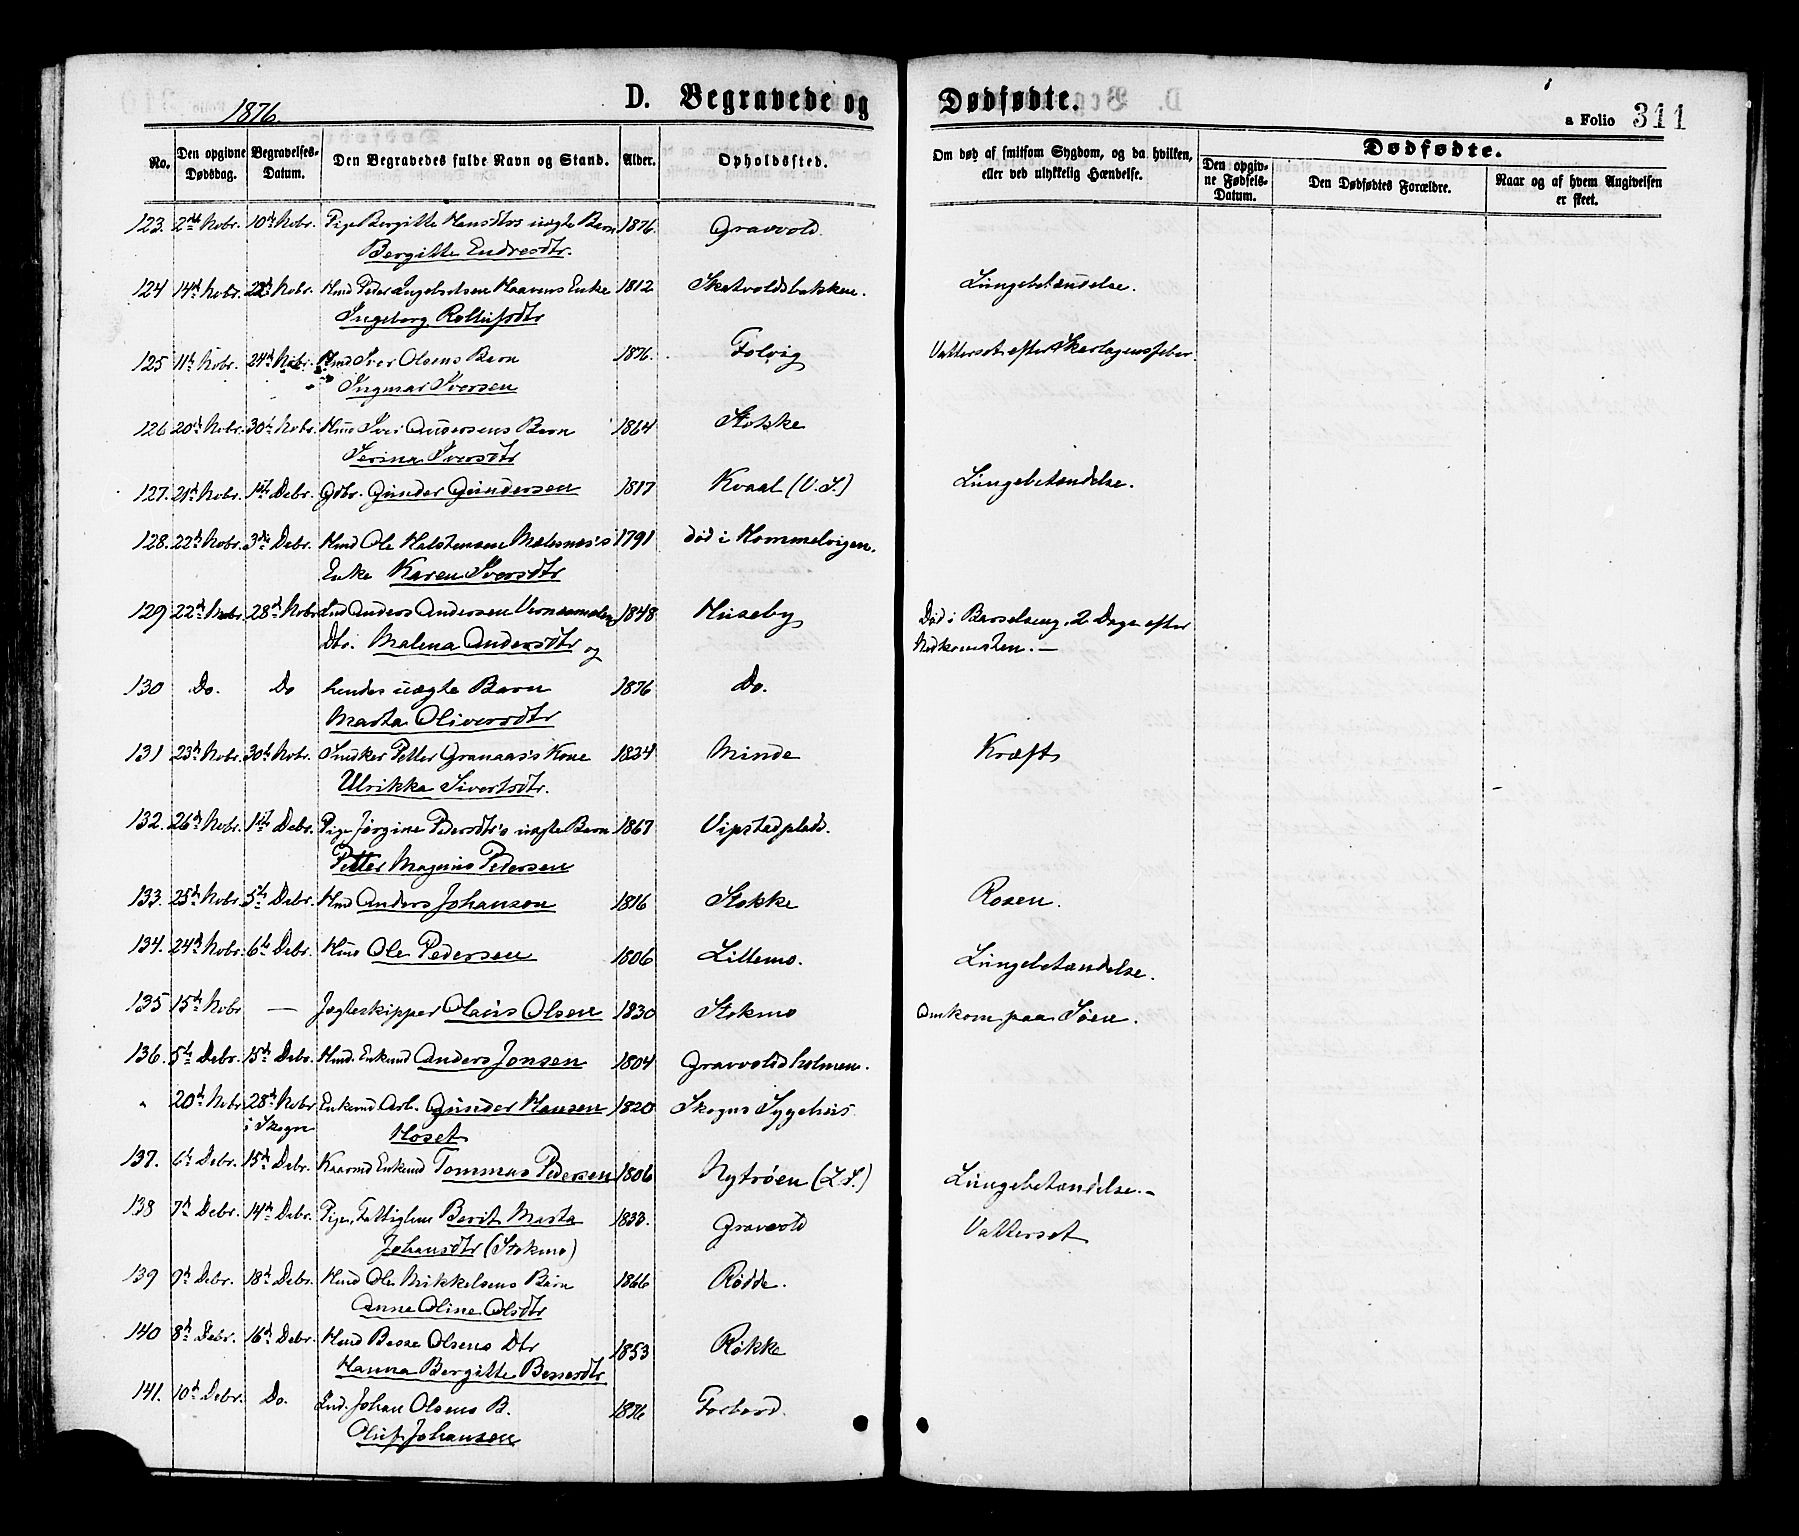 1876.
D. Begravede og Dødfødte.
a Folio 311
No.
Den opgivne Dødsdag.
Begravelses-Datum.
Den Begravedes fulde Navn og Stand.
Alder.
Opholdssted.
Om død af smitsom Sygdom, og da hvilken, eller ved ulykkelig Hændelse.
Dødfødte.
Den opgivne Fødsels-Datum.
Den Dødfødtes Forældre.
Naar og af hvem Angivelsen er skeet.
123. 2den Nobr. 10de Nobr. Pige Bergitte Hansdtrs uægte Barn 1876. Gravvold.
Bergitte Endresdtr.
124 14de Nobr. 22de Nobr. Hmd Peder Haavens Enke 1812 Skatvoldsbakken. Lungebetændelse.
Ingeborg Rollufsdtr
125 11te Nobr. 24de Nobr. Hmd Iver Olsens Barn 1876. Folvig Vattersot efter Skarlagensfeber.
Ingmar Iversen
126 20de Nobr. 30te Nobr. Hmd Iver Andersens Barn 1864 Stokke
Serina Iversdtr
127. 21de Nobr. 1ste Debr. Gdbr. Gunder Gundersen 1817 Kvaal (V.S.) Lungebetændelse.
128. 22de Nobr. 3die Debr. Hmd Ole Halstensen Mælesnæs's 1791 død i Hommelvigen.
Enke Karen Iversdtr
129 22de Nobr. 28de Nobr. Ind Anders Andersen 1848. Huseby Død i Barselseng, 2 Dage efter
Dtr. Malena Andersdtr og Nedkomsten. —
130 Do. Do hendes uægte Barn 1876 Do.
Marta Oliversdtr
131 23de Nobr. 30te Nobr. Snedker Petter Granaas's Kone 1834 Minde Kræft
Ulrikka Sivertsdtr.
132. 26de Nobr. 1ste Debr. Pige Jørgine Pedersdtr's uægte Barn 1867 Vipstadplads.
Petter Magnus Pedersen
133. 25de Nobr. 5te Debr. Hmd Anders Johansen 1816 Stokke Rosen.
134. 24de Nobr. 6te Debr. Hmd Ole Pedersen 1806 Lillemo. Lungebetændelse.
135 15de Nobr — Jægteskipper Olaus Olsen 1830 Stokmo Omkom paa Søen.
136. 5te Debr. 15de Debr. Hmd. Enkemd Anders Jonsen 1804 Gravvoldsholmen.
" 20de Nobr 28de Nobr Enkemd Arb. Gunder Hansen 1820 Skogns Sygehuus
i Skogn Hoset
137. 6te Debr. 15de Debr. Kaarmd Enkemd Tommas Pedersen 1806 Nytrøen (L.S.) Lungebetændelse. —
138 7de Debr. 14de Debr. Pige, Fattiglem Berit Marta 1833. Gravvold Vattersot
Johansdtr (Stokmo)
139 9de Debr. 18de Debr. Hmd Ole Mikkelsens Barn 1866 Rødde.
Anne Oline Olsdtr
140 8de Debr. 16de Debr. Hmd Besse Olsens Dtr 1853 Røkke
Hanna Bergitte Bessesdtr
141. 10de Debr. Do. Ind. Johan Olsens B. 1876 Forbord.
Oluf Johansen